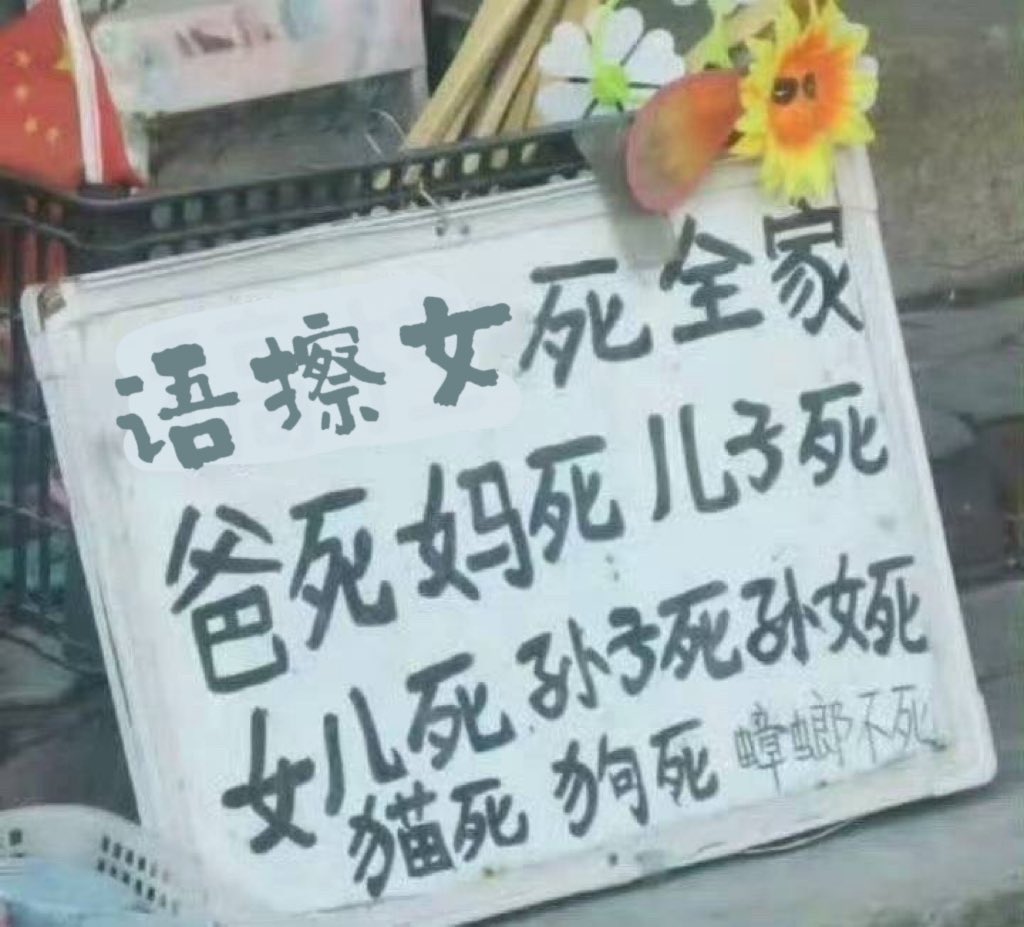 语擦女死全家
爸死妈死儿子死
女儿死孙子死孙女死
猫死狗死蟑螂不死